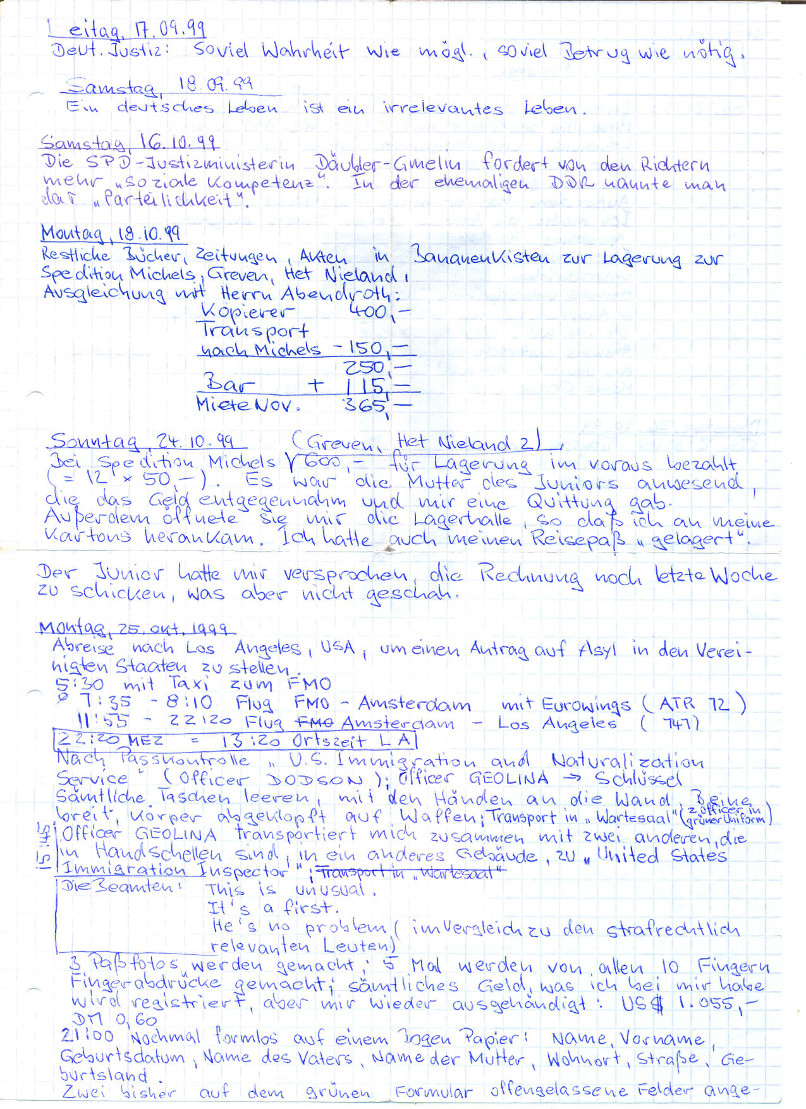 eitag, 17.09.99
Deut. Justiz: Soviel Wahrheit wie mögl., soviel Betrug wie nötig.
Samstag, 18.09.99
Ein deutsches Leben ist ein irrelevantes Leben.
Samstag, 16.10.99
Die SPD-Justizministerin Däubler-Gmelin fordert von den Richtern
mehr „soziale Kompetenz“. In der ehemaligen DDR nannte man
das „Parteilichkeit“.
Montag, 18.10.99
Restliche Bücher, Zeitungen, Akten in Bananenkisten zur Lagerung zur
Spedition Michels, Greven, Het Nieland,
Ausgleichung mit Herrn Abendroth:
Kopierer 400,—
Transport
nach Michels - 150,—
250,—
Bar + 115,—
Miete Nov. 365,—
Sonntag, 24.10.99 (Greven, Het Nieland 2),
Bei Spedition Michels 600,— für Lagerung im voraus bezahlt
(= 12 × 50,—). Es war die Mutter des Juniors anwesend,
die das Geld entgegennahm und mir eine Quittung gab.
Außerdem öffnete sie mir die Lagerhalle, so daß ich an meine
Kartons herankam. Ich hatte auch meinen Reisepaß „gelagert“.
Der Junior hatte mir versprochen, die Rechnung noch letzte Woche
zu schicken, was aber nicht geschah.
Montag, 25. Okt. 1999
Abreise nach Los Angeles, USA, um einen Antrag auf Asyl in den Verei-
nigten Staaten zu stellen.
5:30 mit Taxi zum FMO
7:35 - 8:10 Flug FMO - Amsterdam mit Eurowings (ATR 72)
11:55 - 22:20 Flug FMO Amsterdam - Los Angeles (747)
22:20 MEZ = 13:20 Ortszeit LA
Nach Passkontrolle „U.S. Immigration and Naturalization
Service“ (Officer DODSON); Officer GEOLINA → Schlüssel
Sämtliche Taschen leeren, mit den Händen an die Wand, Beine
breit, Körper abgeklopft auf Waffen; Transport in „Wartesaal“ (2 Officer in grüner Uniform)
15:45 Officer GEOLINA transportiert mich zusammen mit zwei anderen, die
in Handschellen sind, in ein anderes Gebäude, zu „United States
Immigration Inspector“; Transport in „Wartesaal“
Die Beamten: This is unusual.
It's a first.
He's no problem (im Vergleich zu den strafrechtlich
relevanten Leuten)
3 Paßfotos werden gemacht; 5 Mal werden von allen 10 Fingern
Fingerabdrücke gemacht; sämtliches Geld, was ich bei mir habe
wird registriert, aber mir wieder ausgehändigt: US$ 1.055,—
DM 0,60
21:00 Nochmal formlos auf einem Bogen Papier: Name, Vorname,
Geburtsdatum, Name des Vaters, Name der Mutter, Wohnort, Straße, Ge-
burtsland.
Zwei bisher auf dem grünen Formular offengelassene Felder ange-